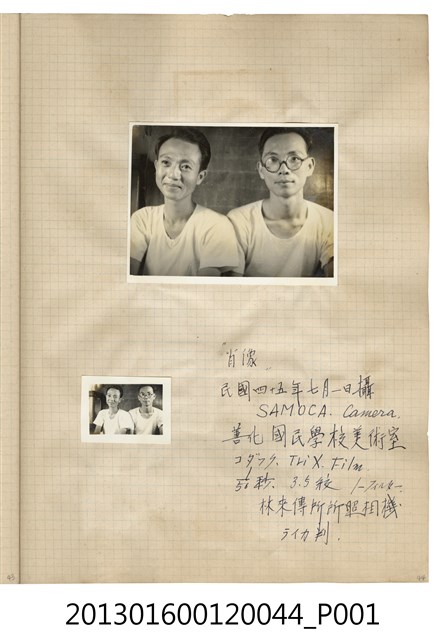 肖像
民國四十五年七月一日攝
SAMOCA. Camera.
善化國民學校美術室
コダック. Tri X. Film.
1/50秒. 3.5絞 ノーフィルター.
林來傳所照相機
ライカ判.
43
44
201301600120044_P001